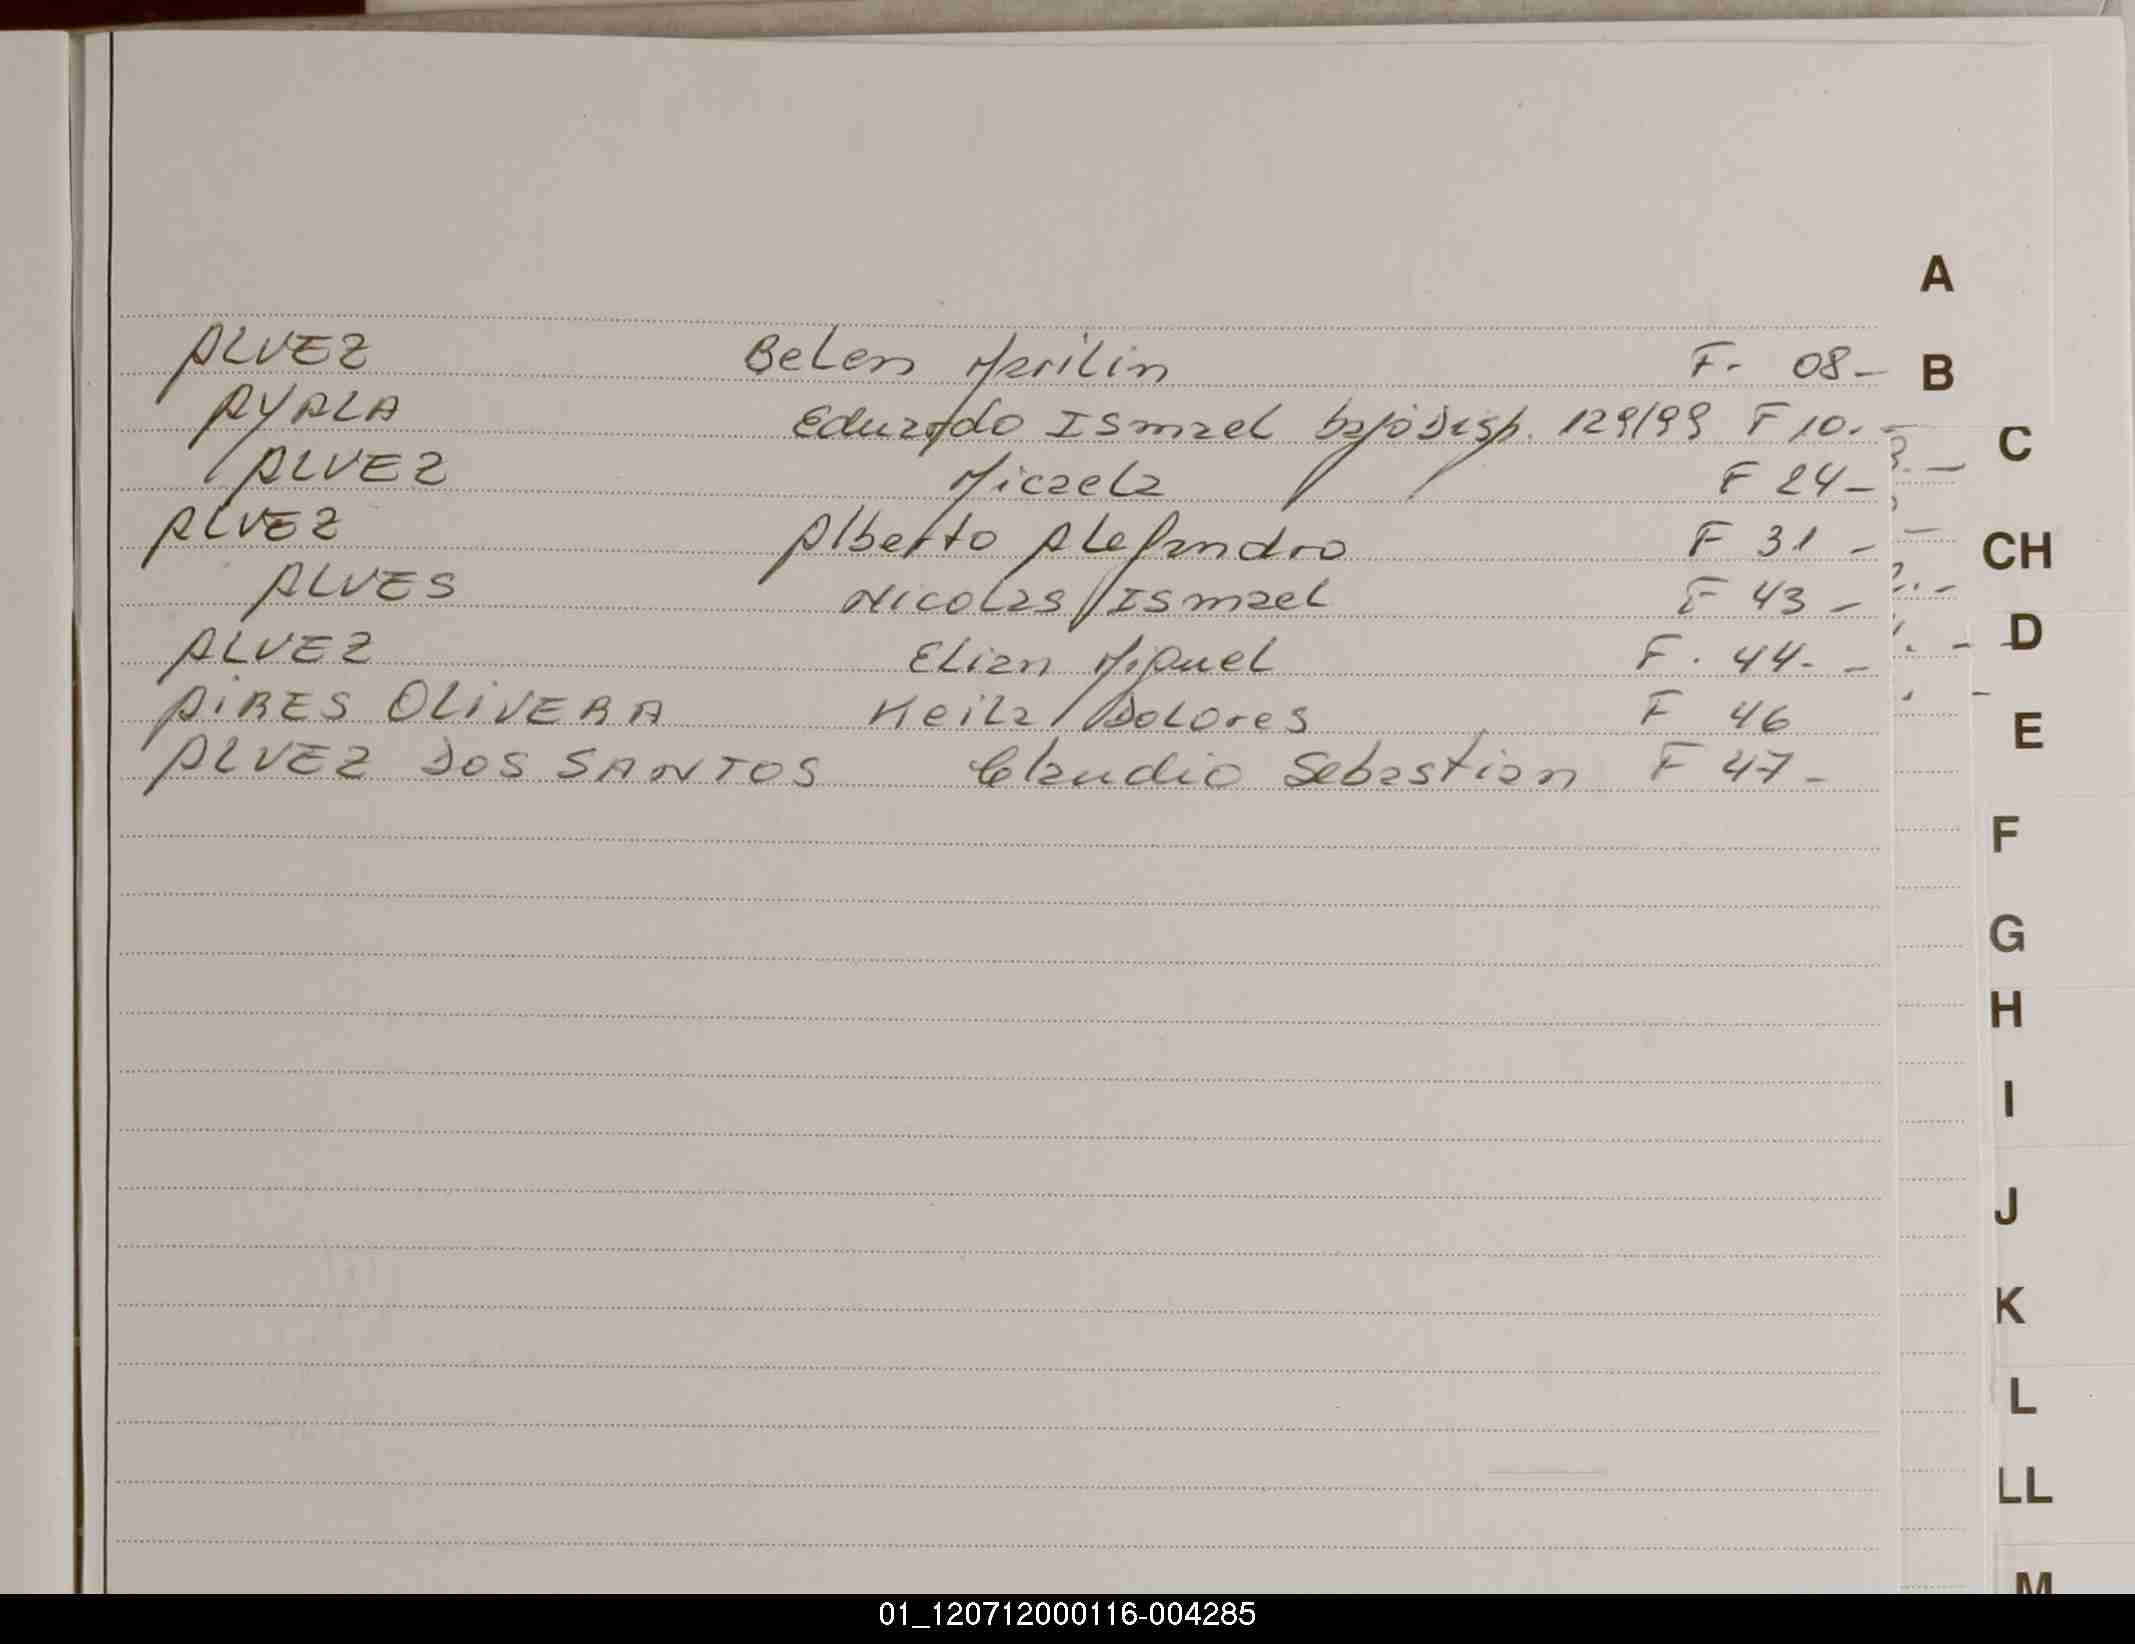 A
ALVEZ Belen Marilin F. 08-
B
AYALA Eduardo Ismael bajo Disp. 129/99 F 10.-
C
ALVEZ Micaela F 24-
ALVEZ Alberto Alejandro F 31-
CH
ALVES Nicolas Ismael F 43-
D
ALVEZ Elian Miguel F. 44.-
AIRES OLIVERA Keila Dolores F 46
E
ALVEZ DOS SANTOS Claudio Sebastian F 47-
F
G
H
I
J
K
L
LL
M
01_120712000116-004285